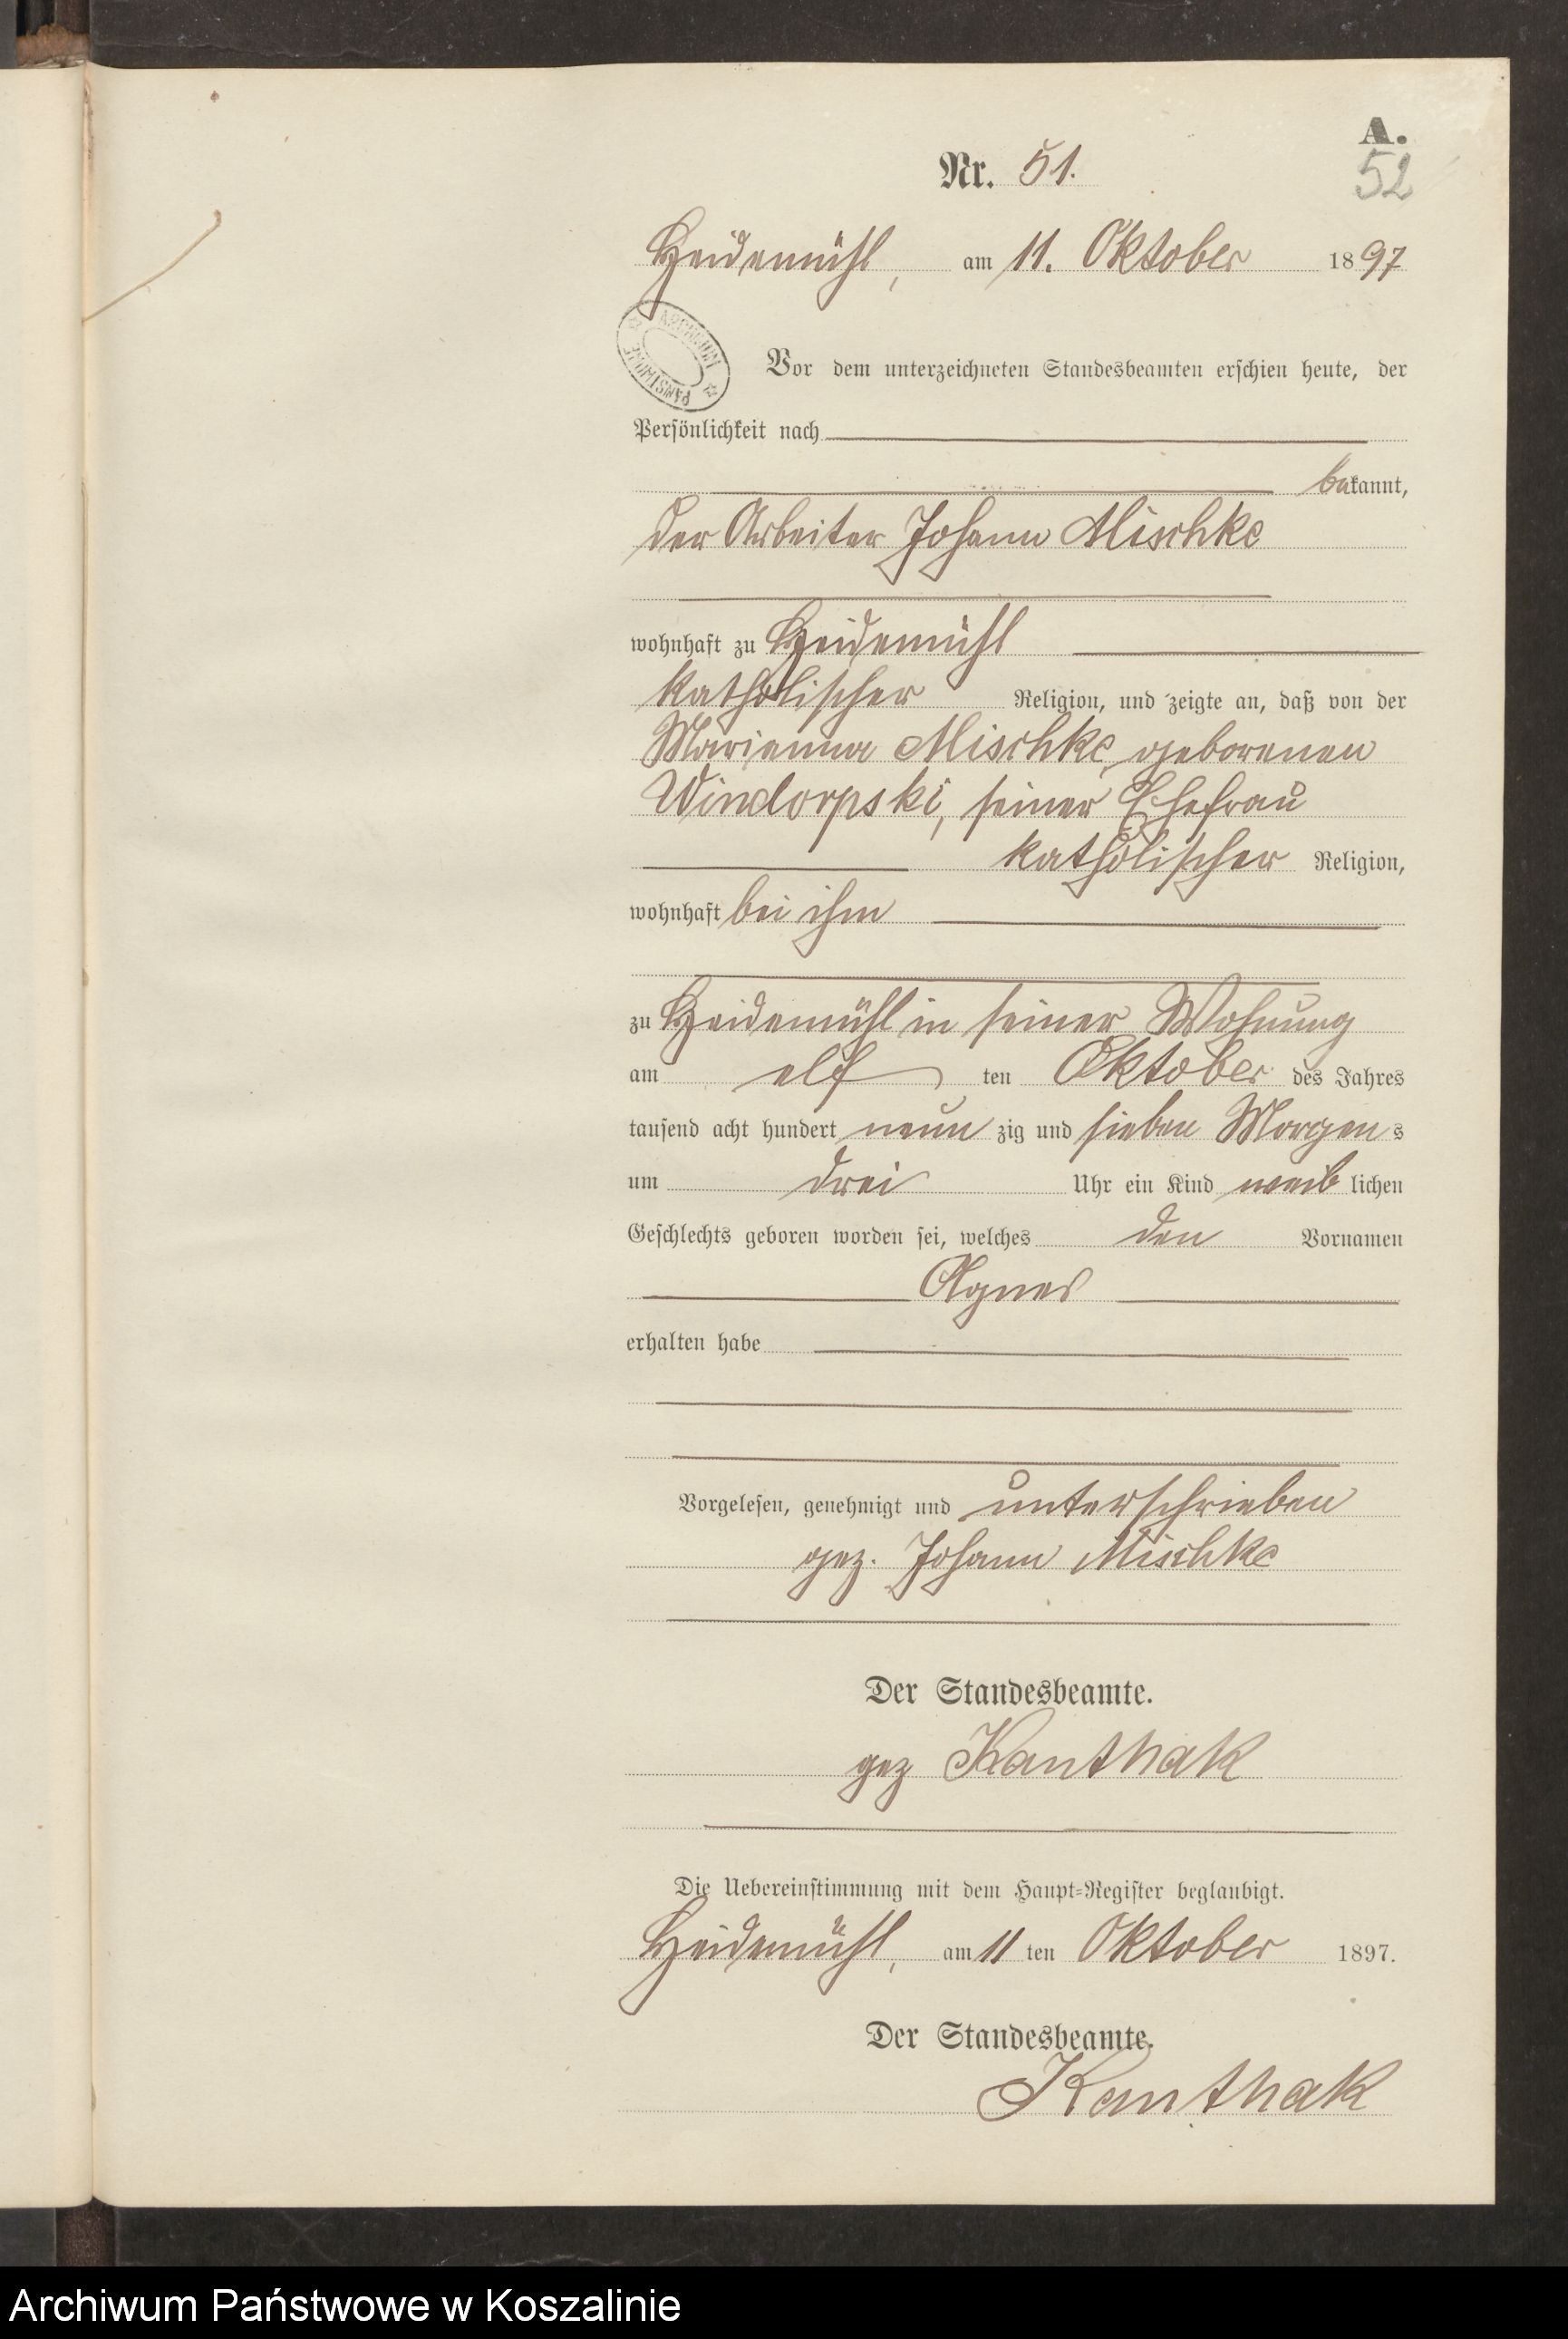 A.
52
Nr. 51.
Heidemühl, am 11. Oktober 1897
ARCHIWUM PAŃSTWOWE
Vor dem unterzeichneten Standesbeamten erschien heute, der
Persönlichkeit nach
bekannt,
der Arbeiter Johann Mischke
wohnhaft zu Heidemühl
katholischer Religion, und zeigte an, daß von der
Marianna Mischke, geborenen
Windorpski, seiner Ehefrau
katholischer Religion,
wohnhaft bei ihm
zu Heidemühl in seiner Wohnung
am elf ten Oktober des Jahres
tausend acht hundert neun zig und sieben Morgens
um drei Uhr ein Kind weiblichen
Geschlechts geboren worden sei, welches den Vornamen
Agnes
erhalten habe
Vorgelesen, genehmigt und unterschrieben
gez. Johann Mischke
Der Standesbeamte.
gez Kanthak
Die Uebereinstimmung mit dem Haupt-Register beglaubigt.
Heidemühl, am 11 ten Oktober 1897.
Der Standesbeamte.
Kanthak
Archiwum Państwowe w Koszalinie